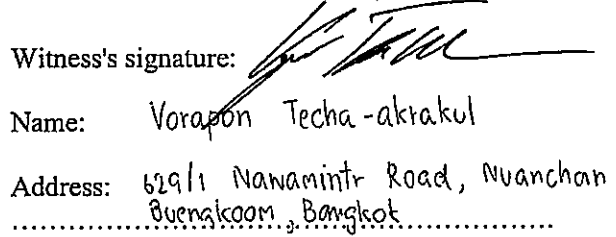 Witness's signature:
Name: Vorapon Techa-akrakul
Address: 629/1 Nawamintr Road, Nuanchan
Buengkoom, Bangkok